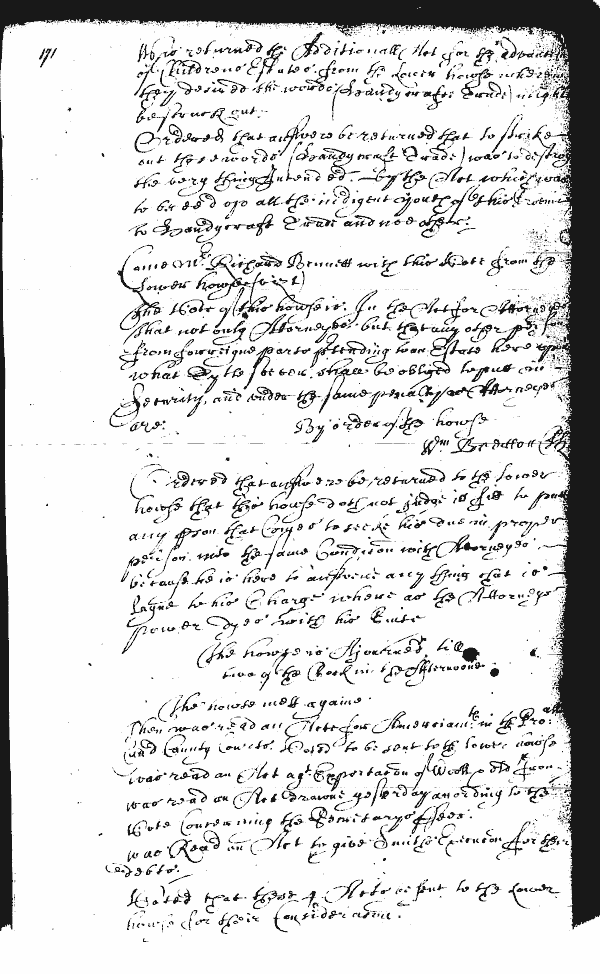 171
Was returned the Additionall Act for the advance
of Childrens Estates from the Lower howse wherein
they desired the words (Handycrafts Trade) might
be struck out.
Ordered that answere be returned that to strike
out those words (Handycraft Trade) was to destroy
the very thing Intended by the Act which was
to breed upp all the indigent youth of this Province
to Handycraft Trade and noe other.
Came Mr Richard Bennett with this Vote from the
Lower howse (vizt)
The Vote of this howse is. In the Act for Attorneyes
that not only Attorneyes but that any other person
from forreigne parts ptending to an Estate here
what by the soever, shall be obliged to put in
Security, and under the same penaltyes as Attorneyes
are.
By order of the howse
Wm Bretton
Ordered that answere be returned to the Lower
howse that this howse doth not judge it fitt to putt
any pson that Comes to seeke his due in proper
person into the same Condicon with Attorneyes
because he is here to answere any thing that is
layne to his Charge where as the Attorneys
power dyes with his Suite
The howse is Ajourned till
two of the Clock in the Afternoone.
The howse mett againe.
Then was read an Acte for Amerciamts in the Proall
and County Courts. Voted to be sent to the lower howse
was read an Act agt Exportacon of Wooll & old Iron
was read an Act drawne yesterday according to the
Vote Concerning the Secretarys ffees.
was Read an Act to give Execucon for their
debts.
Voted that these 4 Acts be sent to the Lower
howse for their Consideracon.